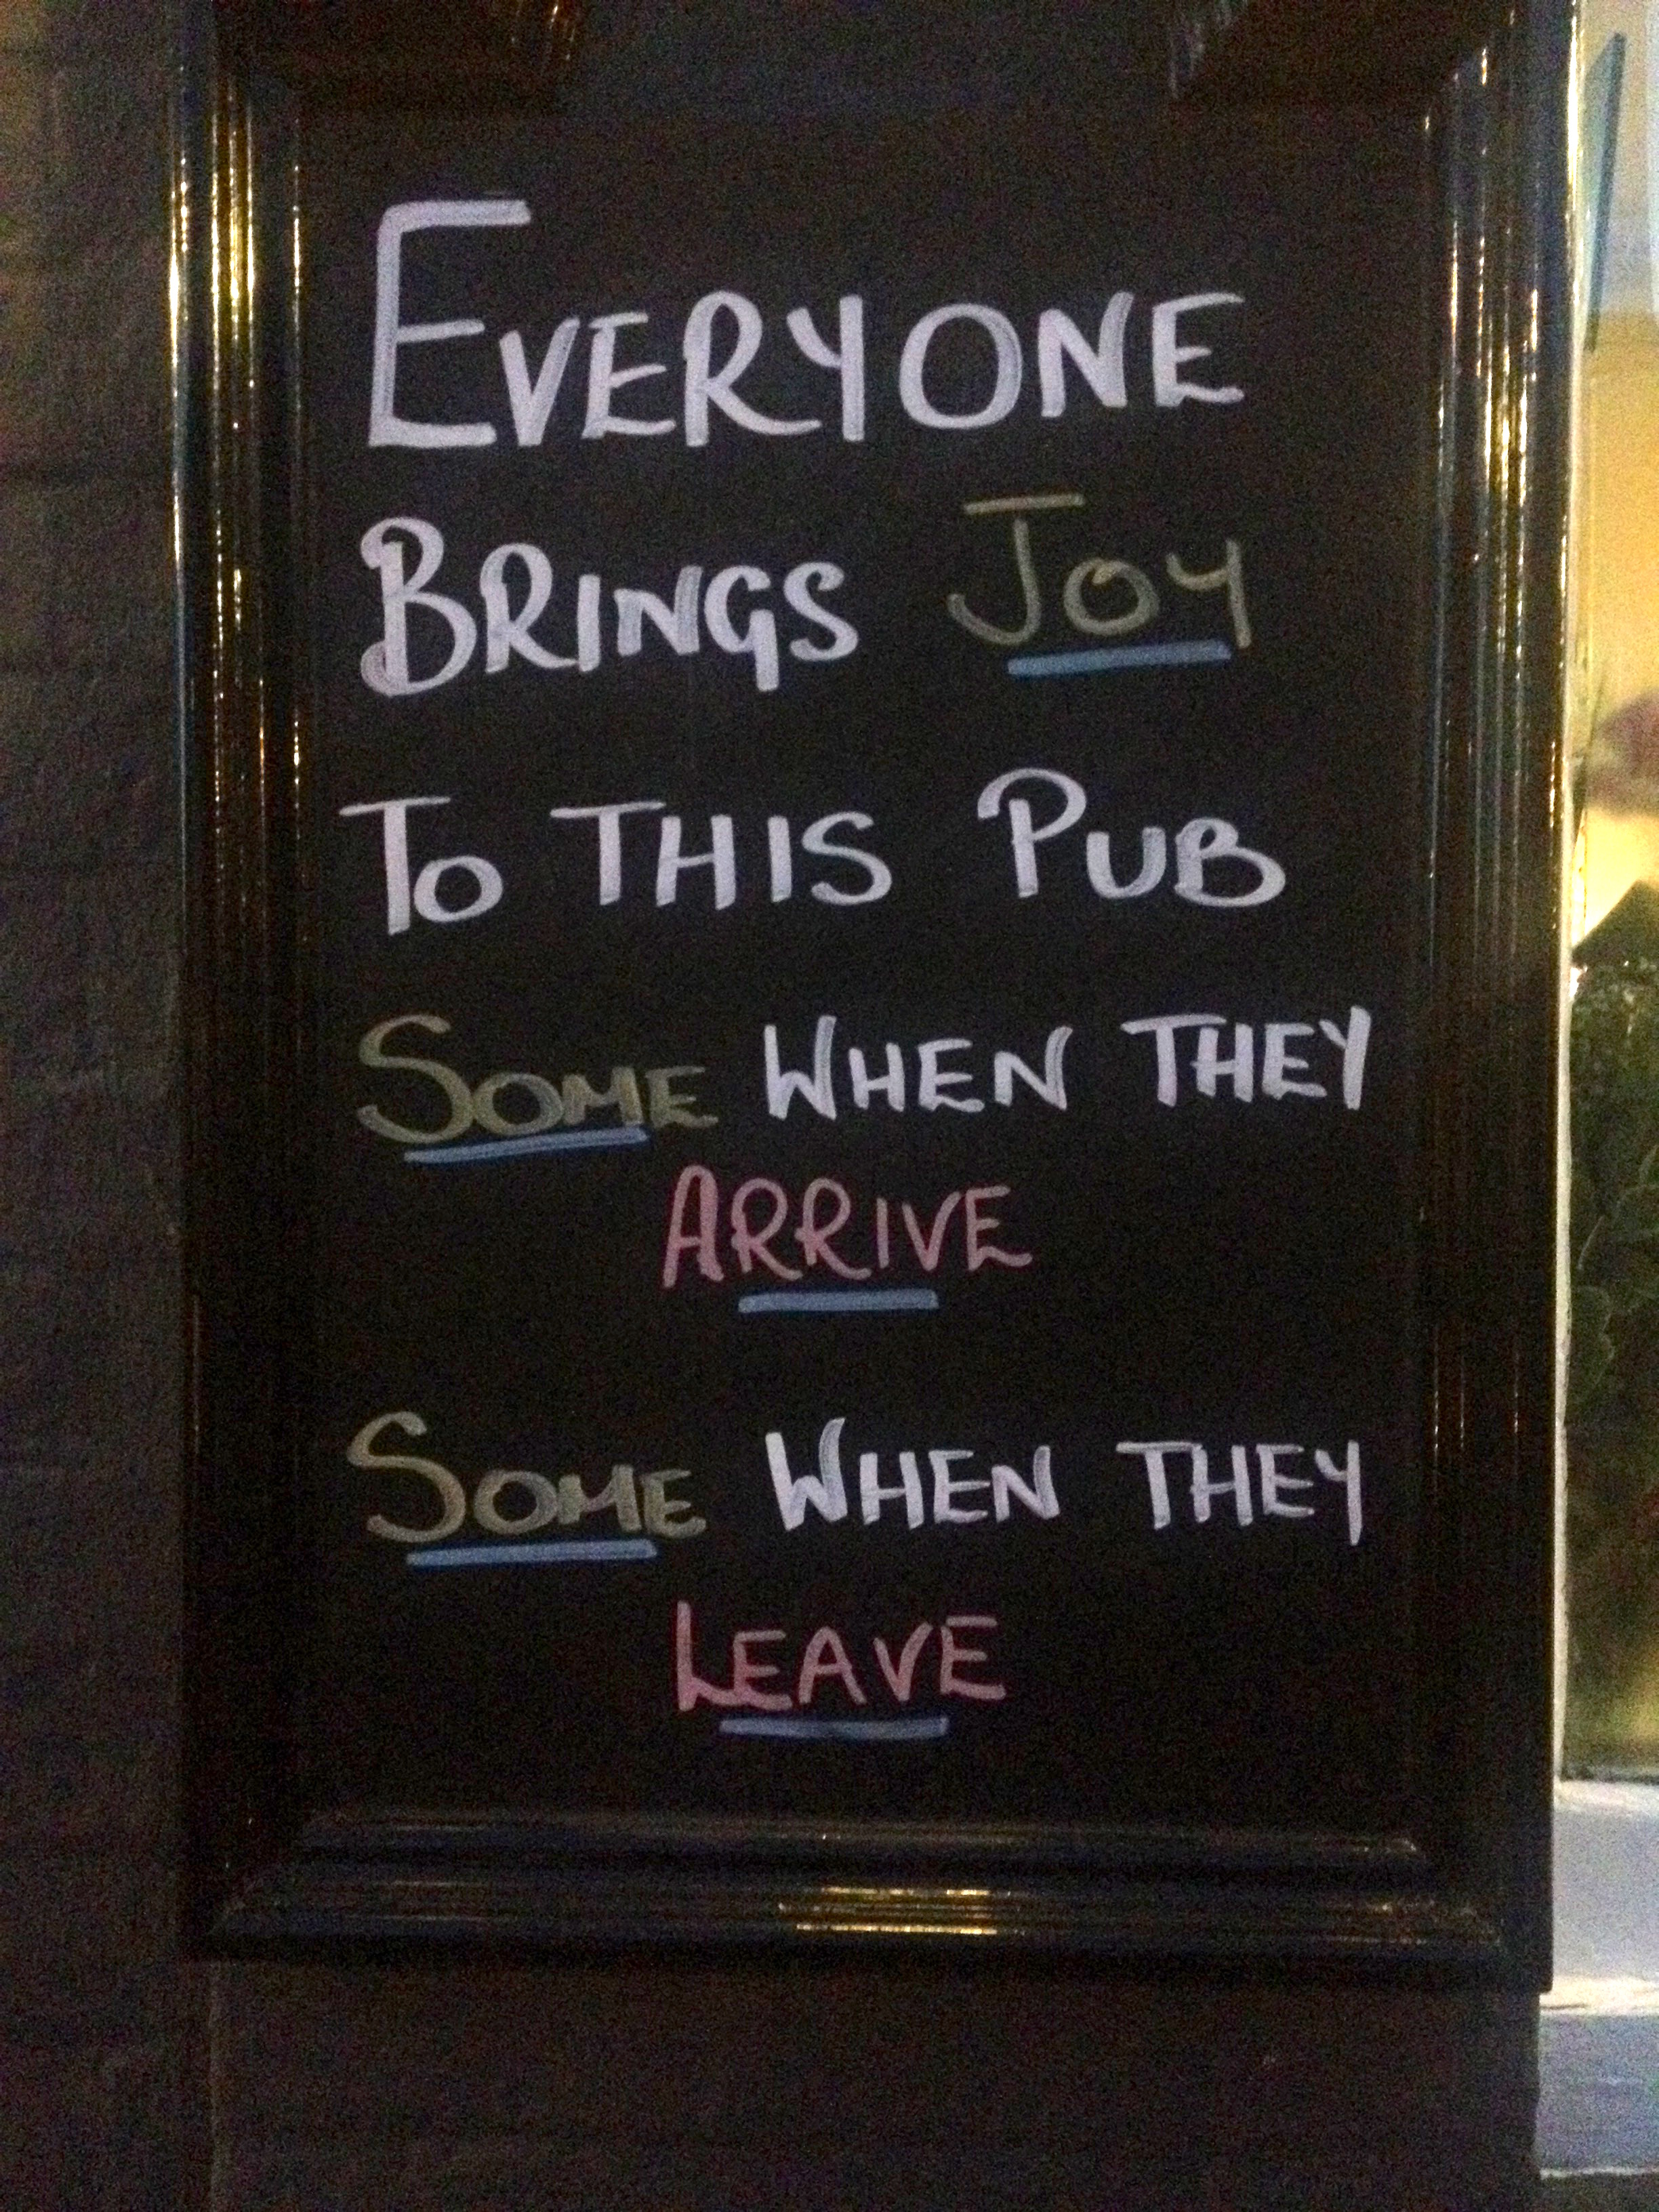 EVERYONE
BRINGS JOY
TO THIS PUB
SOME WHEN THEY
ARRIVE
SOME WHEN THEY
LEAVE